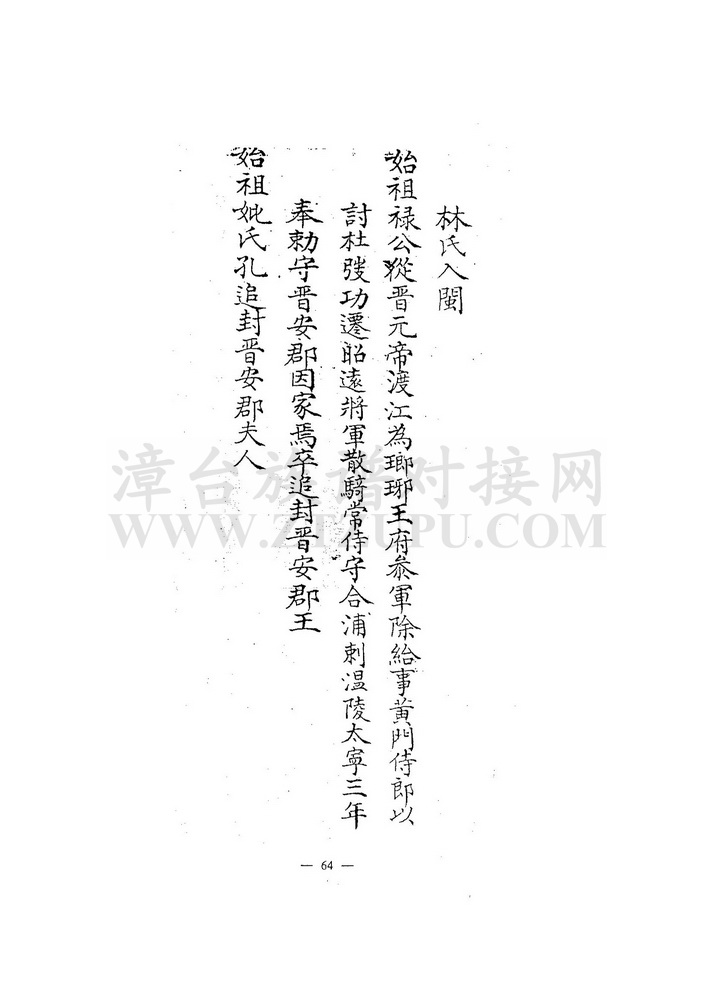 林氏入閩
始祖禄公從晋元帝渡江為瑯琊王府叅軍除給事黄門侍郎以
討杜弢功遷昭遠將軍散騎常侍守合浦刺温陵太寧三年
奉勅守晋安郡因家焉卒追封晋安郡王
始祖妣氏孔追封晋安郡夫人
漳台族谱对接网
WWW.ZTZUPU.COM
— 64 —